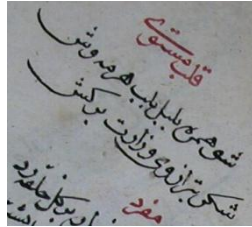 قلب مستوی
شو همره بلبل بلب هر مهوش
شکر بترازوی وزارت برکش
مفرد
بر گل حلقه زد